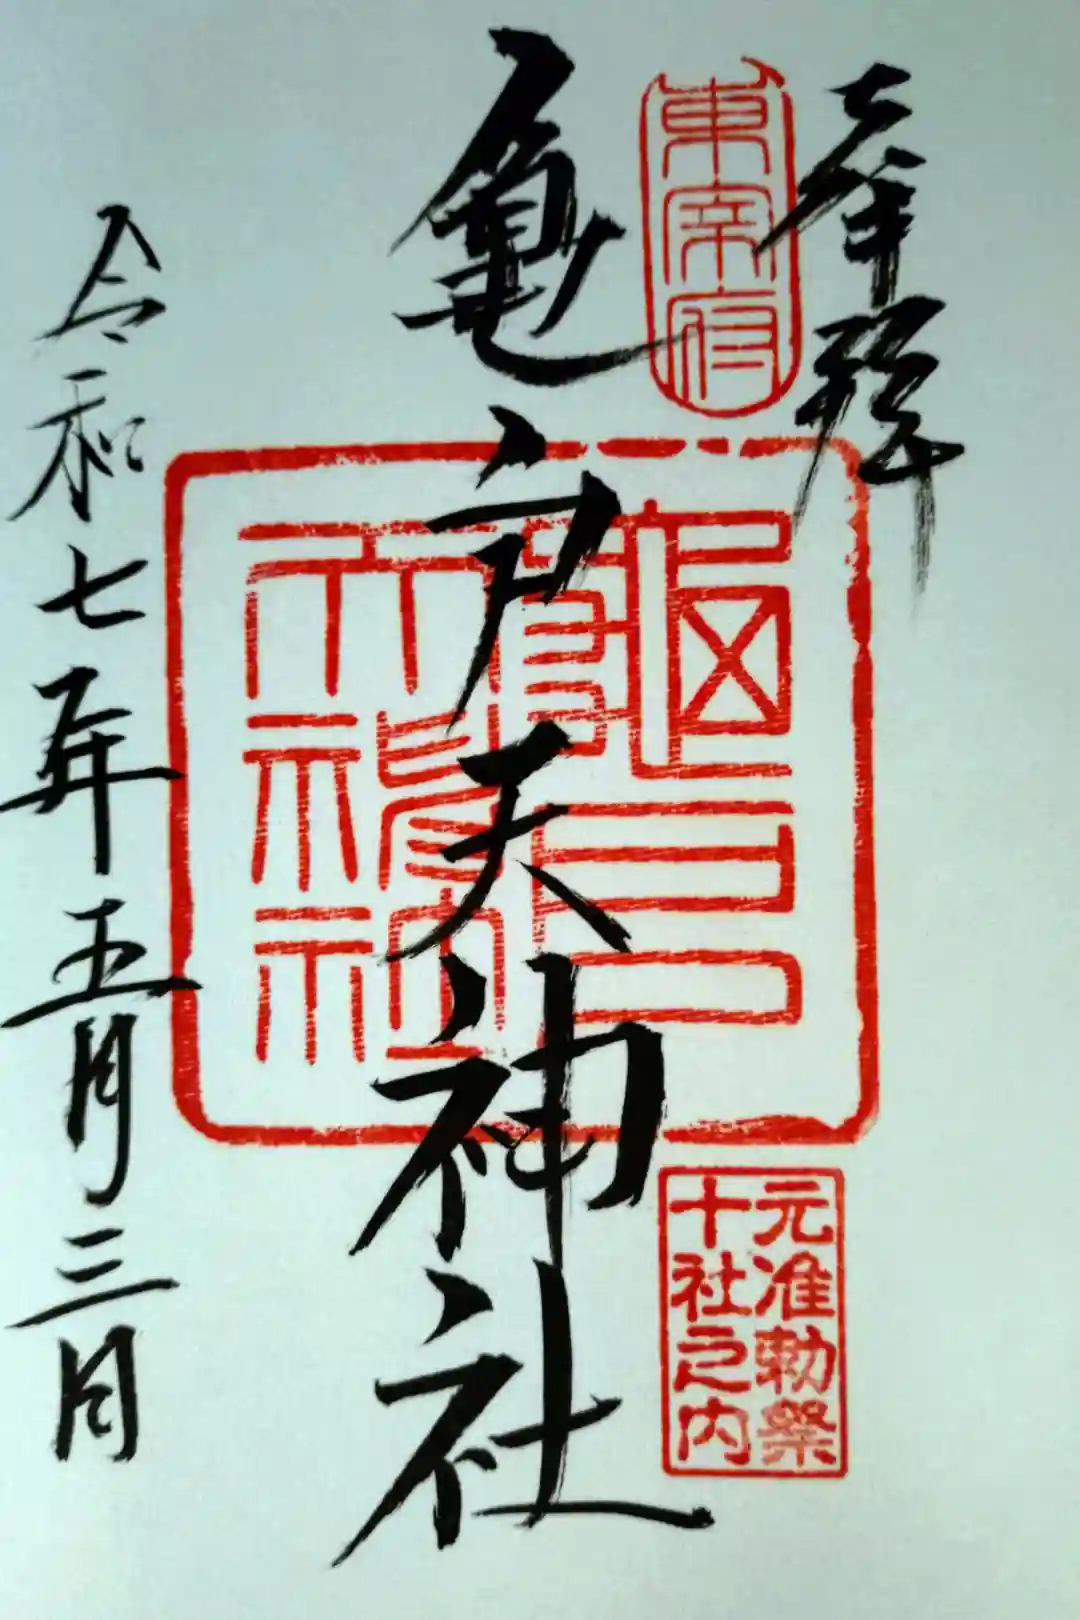 奉拝
東宰府
亀戸天神社
元准勅祭
十社之内
令和七年五月三日